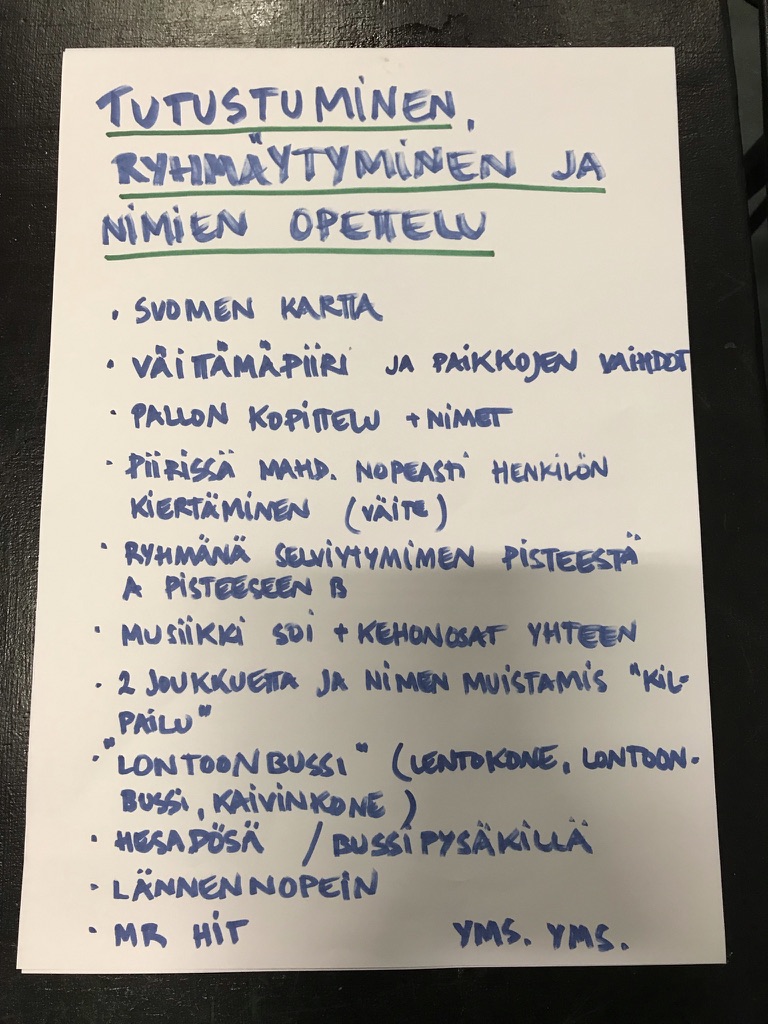 TUTUSTUMINEN,
RYHMÄYTYMINEN JA
NIMIEN OPETTELU
• SUOMEN KARTTA
• VÄITTÄMÄPIIRI JA PAIKKOJEN VAIHDOT
• PALLON KOPITTELU + NIMET
• PIIRISSÄ MAHD. NOPEASTI HENKILÖN
KIERTÄMINEN (VÄITE)
• RYHMÄNÄ SELVIYTYMIMEN PISTEESTÄ
A PISTEESEEN B
• MUSIIKKI SOI + KEHONOSAT YHTEEN
• 2 JOUKKUETTA JA NIMEN MUISTAMIS "KIL-
PAILU"
• "LONTOONBUSSI" (LENTOKONE, LONTOON-
BUSSI, KAIVINKONE)
• HESAPÖSÄ / BUSSIPYSÄKILLÄ
• LÄNNEN NOPEIN
• MR HIT YMS. YMS.